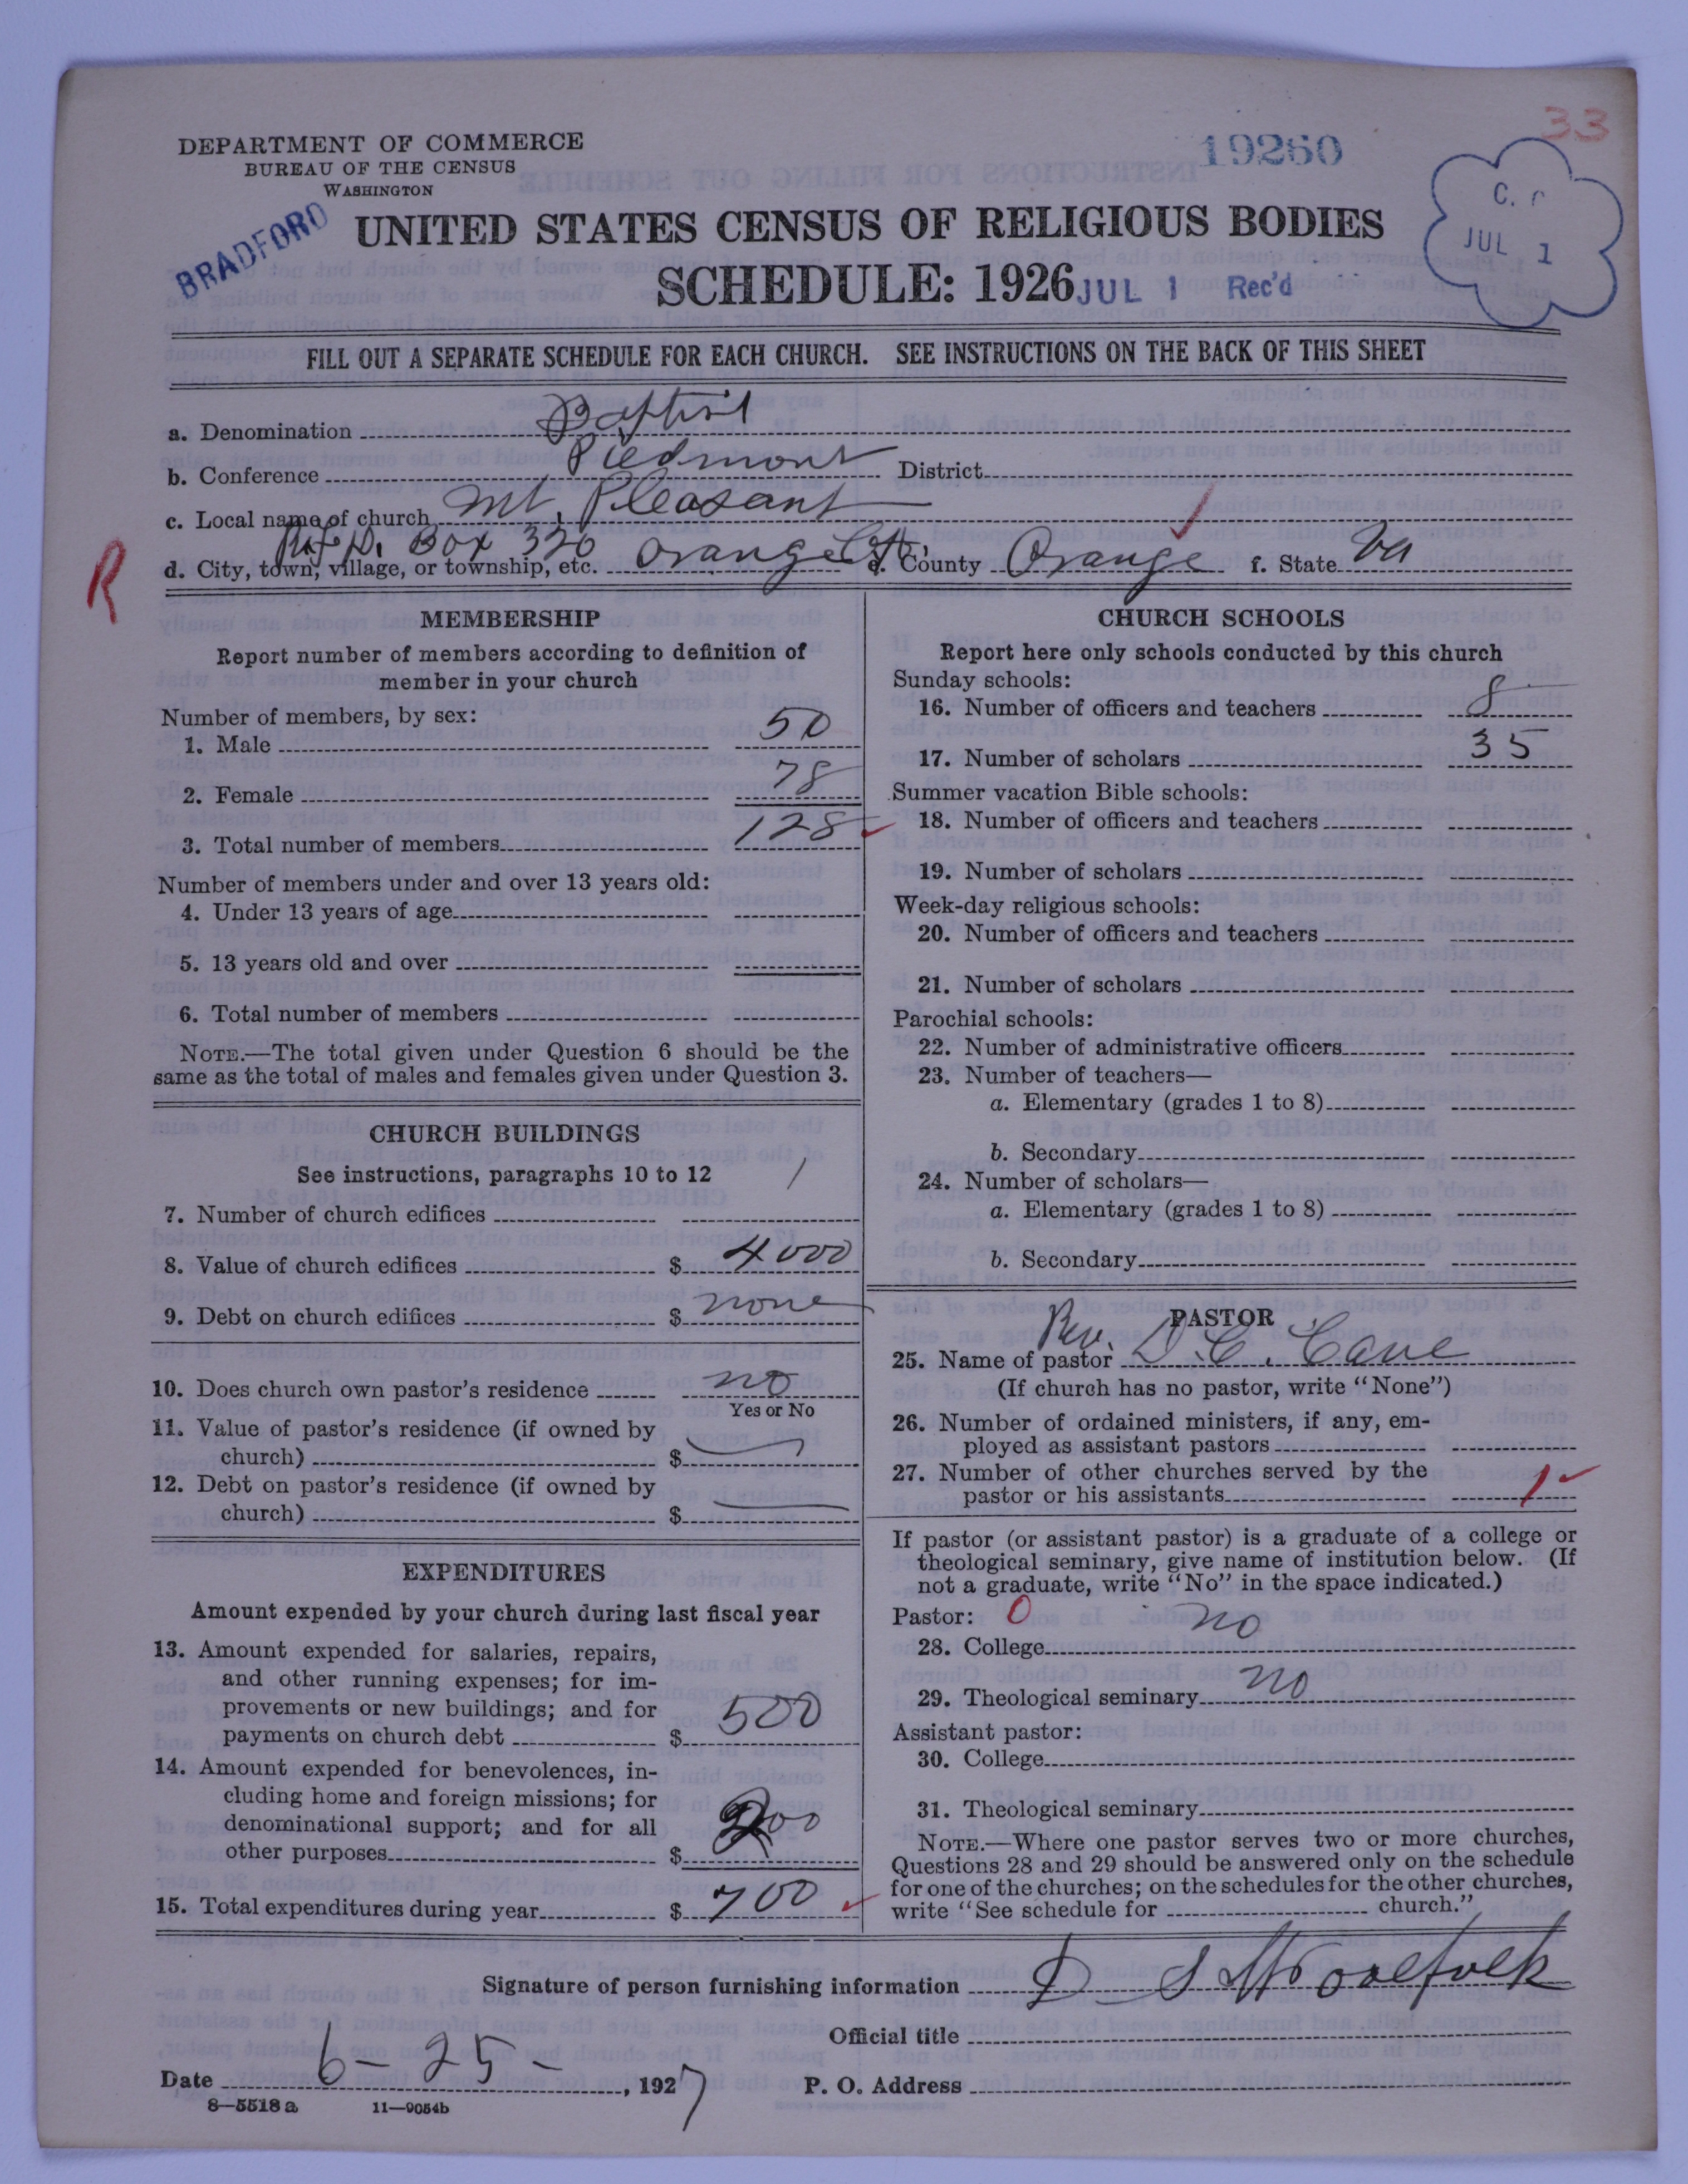 33
19260
DEPARTMENT OF COMMERCE
BUREAU OF THE CENSUS
WASHINGTON
BRADFORD
UNITED STATES CENSUS OF RELIGIOUS BODIES
SCHEDULE: 1926
JUL 1 Rec'd
JUL 1
FILL OUT A SEPARATE SCHEDULE FOR EACH CHURCH. SEE INSTRUCTIONS ON THE BACK OF THIS SHEET
a. Denomination Baptist
b. Conference Piedmont District
c. Local name of church Mt. Pleasant
R.f.D. Box 320
d. City, town, village, or township, etc. Orange e. County Orange f. State Va
R
MEMBERSHIP
Report number of members according to definition of
member in your church
Number of members, by sex:
1. Male 50
2. Female 78
3. Total number of members 128
Number of members under and over 13 years old:
4. Under 13 years of age
5. 13 years old and over
6. Total number of members
NOTE.—The total given under Question 6 should be the
same as the total of males and females given under Question 3.
CHURCH BUILDINGS
See instructions, paragraphs 10 to 12
7. Number of church edifices 1
8. Value of church edifices $ 4000
9. Debt on church edifices $ none
10. Does church own pastor's residence no
Yes or No
11. Value of pastor's residence (if owned by
church) $ —
12. Debt on pastor's residence (if owned by
church) $ —
EXPENDITURES
Amount expended by your church during last fiscal year
13. Amount expended for salaries, repairs,
and other running expenses; for im-
provements or new buildings; and for
payments on church debt $ 500
14. Amount expended for benevolences, in-
cluding home and foreign missions; for
denominational support; and for all
other purposes $ 200
15. Total expenditures during year $ 700
CHURCH SCHOOLS
Report here only schools conducted by this church
Sunday schools:
16. Number of officers and teachers 8
17. Number of scholars 35
Summer vacation Bible schools:
18. Number of officers and teachers
19. Number of scholars
Week-day religious schools:
20. Number of officers and teachers
21. Number of scholars
Parochial schools:
22. Number of administrative officers
23. Number of teachers—
a. Elementary (grades 1 to 8)
b. Secondary
24. Number of scholars—
a. Elementary (grades 1 to 8)
b. Secondary
PASTOR
25. Name of pastor Rev. D. C. Cave
(If church has no pastor, write "None")
26. Number of ordained ministers, if any, em-
ployed as assistant pastors
27. Number of other churches served by the
pastor or his assistants 1
If pastor (or assistant pastor) is a graduate of a college or
theological seminary, give name of institution below. (If
not a graduate, write "No" in the space indicated.)
Pastor: 0
28. College no
29. Theological seminary no
Assistant pastor:
30. College
31. Theological seminary
NOTE.—Where one pastor serves two or more churches,
Questions 28 and 29 should be answered only on the schedule
for one of the churches; on the schedules for the other churches,
write "See schedule for church."
Signature of person furnishing information D S Woolfolk
Official title
Date 6-25-, 1927 P. O. Address
8—5518a 11—9054b